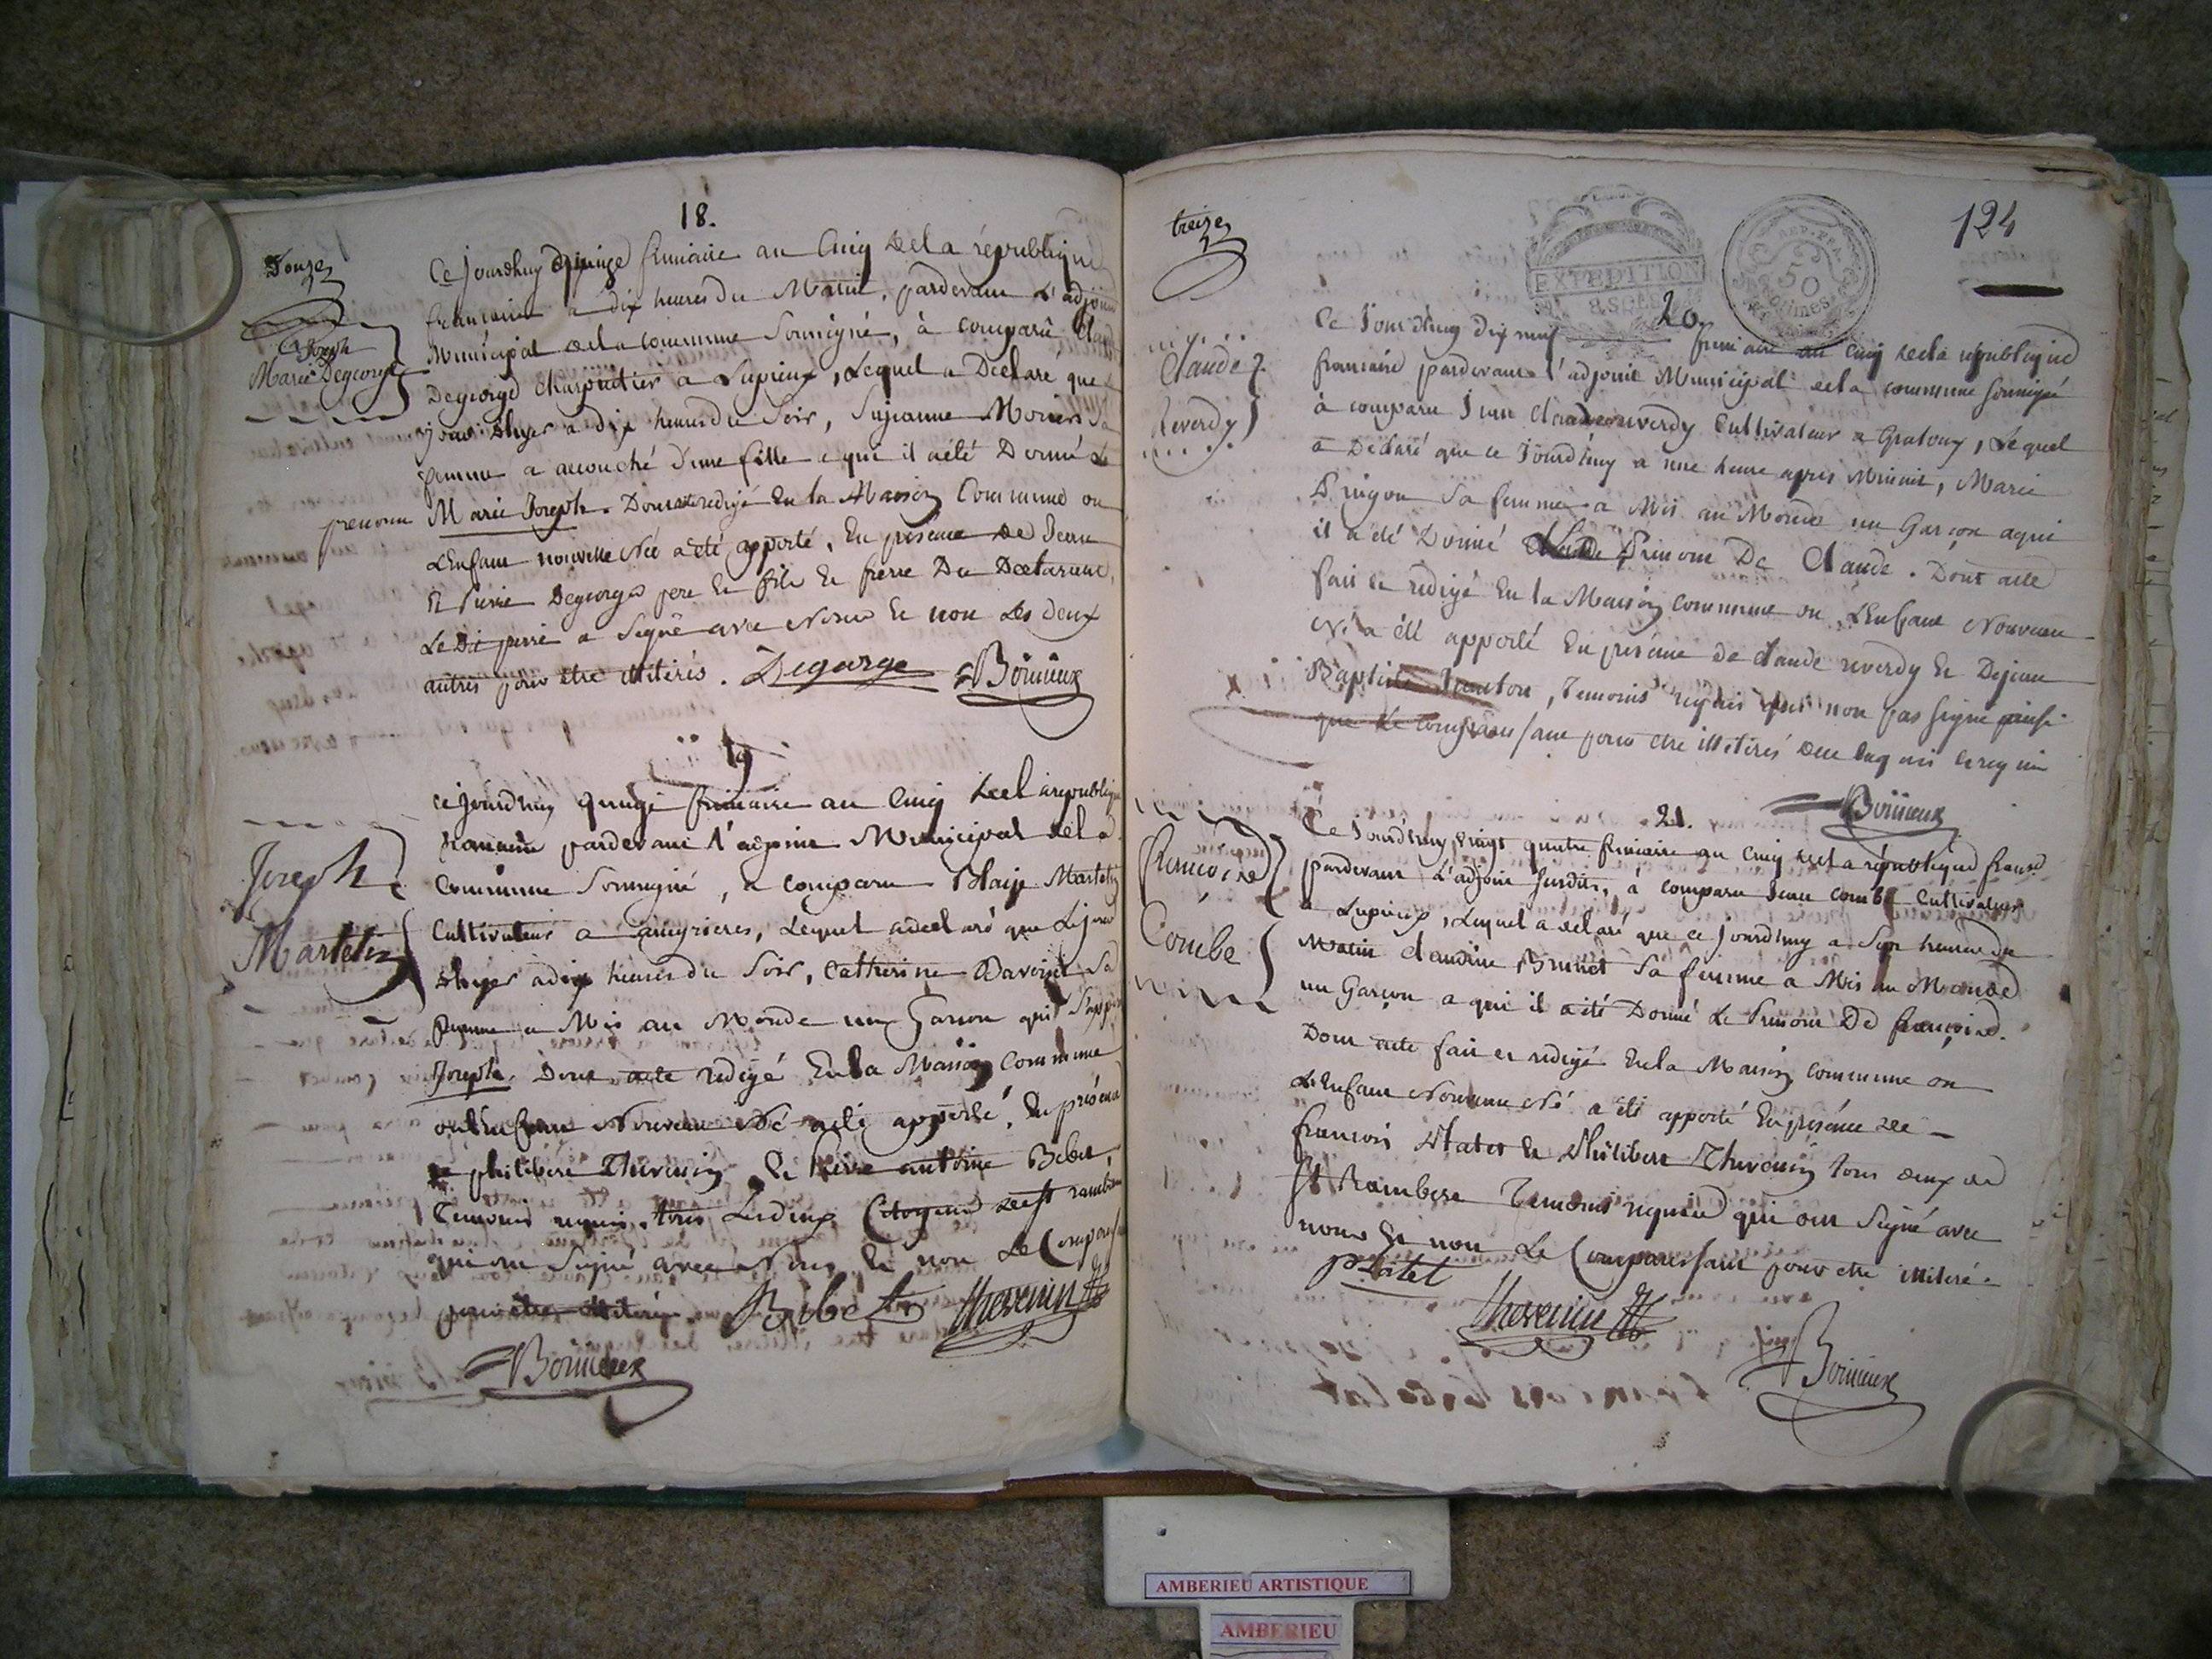 18.
Douze
Ce jourdhuy quinze frimaire an Cinq de la republique
francaise a dix heures du Matin, pardevant L'adjoint
Municipal de la commune Soussigné, à comparu Claude
Degeorge charpentier a Lupieux, Lequel a Declaré que Le
jour d'hyer a dix heures du Soir, Suzanne Morier Sa
femme a accouché d'une fille a qui il a été Donné Le
prenom Marie Joseph. Dont acte redigé En la Maison Commune ou
L'Enfant nouvelle Née a été apporté, En présence De Jean
Et Pierre Degeorge pere Et fils Et frere Du Declarant,
Le Dit pierre a Signé avec Nous Et non Les deux
autres pour être illiterés. Degeorge Boinieux
Joseph
Marie Degeorge
19
ce jourdhuy quinze frimaire an Cinq de la republique
francaise pardevant l'adjoint Municipal de la
Commune Soussigné, a comparu Blaise Martelin
Cultivateur a, Lequel a declaré que Le jour
d'hyer a dix heures du Soir, Catherine Sa
femme a Mis au Monde un Garcon qui
Joseph. Dont acte redigé En la Maison Commune
ou L'Enfant Nouveau Né a été apporté, En présence
de philibert Thevenin Et Pierre antoine Bebet,
temoins requis tous Les deux Citoyens de St rambert
qui ont Signé avec Nous Et non Le Comparassant
pour être illiteré. Bebet Thevenin
Boinieux
Joseph
Martelin
treize
124
EXPEDITION
50
centimes
20.
Ce Jourd'huy dix neuf frimaire an Cinq de la republique
francaise pardevant l'adjoint Municipal de la commune soussigné
à comparu Jean Claude reverdy Cultivateur a Gratoux, Lequel
a Déclaré que ce Jourd'huy a une heure apres Minuit, Marie
Pingon Sa femme a Mis au Monde un Garçon a qui
il a été Donné Le Prenom De Claude. Dont acte
fait et redigé En la Maison commune ou L'Enfant Nouveau
Né a été apporté En présence de Claude reverdy Et De jean
Baptiste, Temoins requis qui non pas signé ainsi
que Le Comparassant pour être illiterés
Boinieux
Claude
Reverdy
21.
Ce Jourd'huy vingt quatre frimaire an Cinq de la république francse
pardevant L'adjoint susdit, à comparu Jean Combe Cultivateur
a Lupieux, Lequel a declaré que ce jourdhuy a Sept heures du
Matin Claudine Brunet Sa femme a Mis au Monde
un Garçon a qui il a été Donné Le Prenom De françois.
Dont acte fait et redigé En la Maison commune ou
L'Enfant Nouveau Né a été apporté En présence de
francois Statet Et Philibert Thevenin tous deux de
St Rambert Temoins requis qui ont Signé avec
nous Et non Le Comparassant pour être illiteré.
Thevenin
Boinieux
françois
Combe
AMBERIEU ARTISTIQUE
AMBERIEU